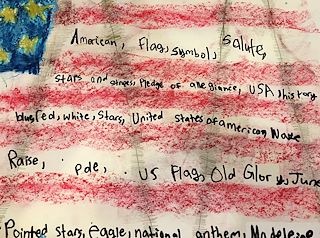 American, Flag, symbol, salute,
stars and stripes, Pledge of allegiance, USA, history
blue, red, white, stars, United states of american,
Raise, Pole, US Flag, Old Glory, June
Pointed stars, eagle, national anthem,